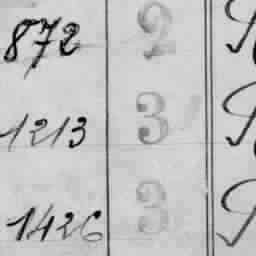 872 2
1213 3
1426 3